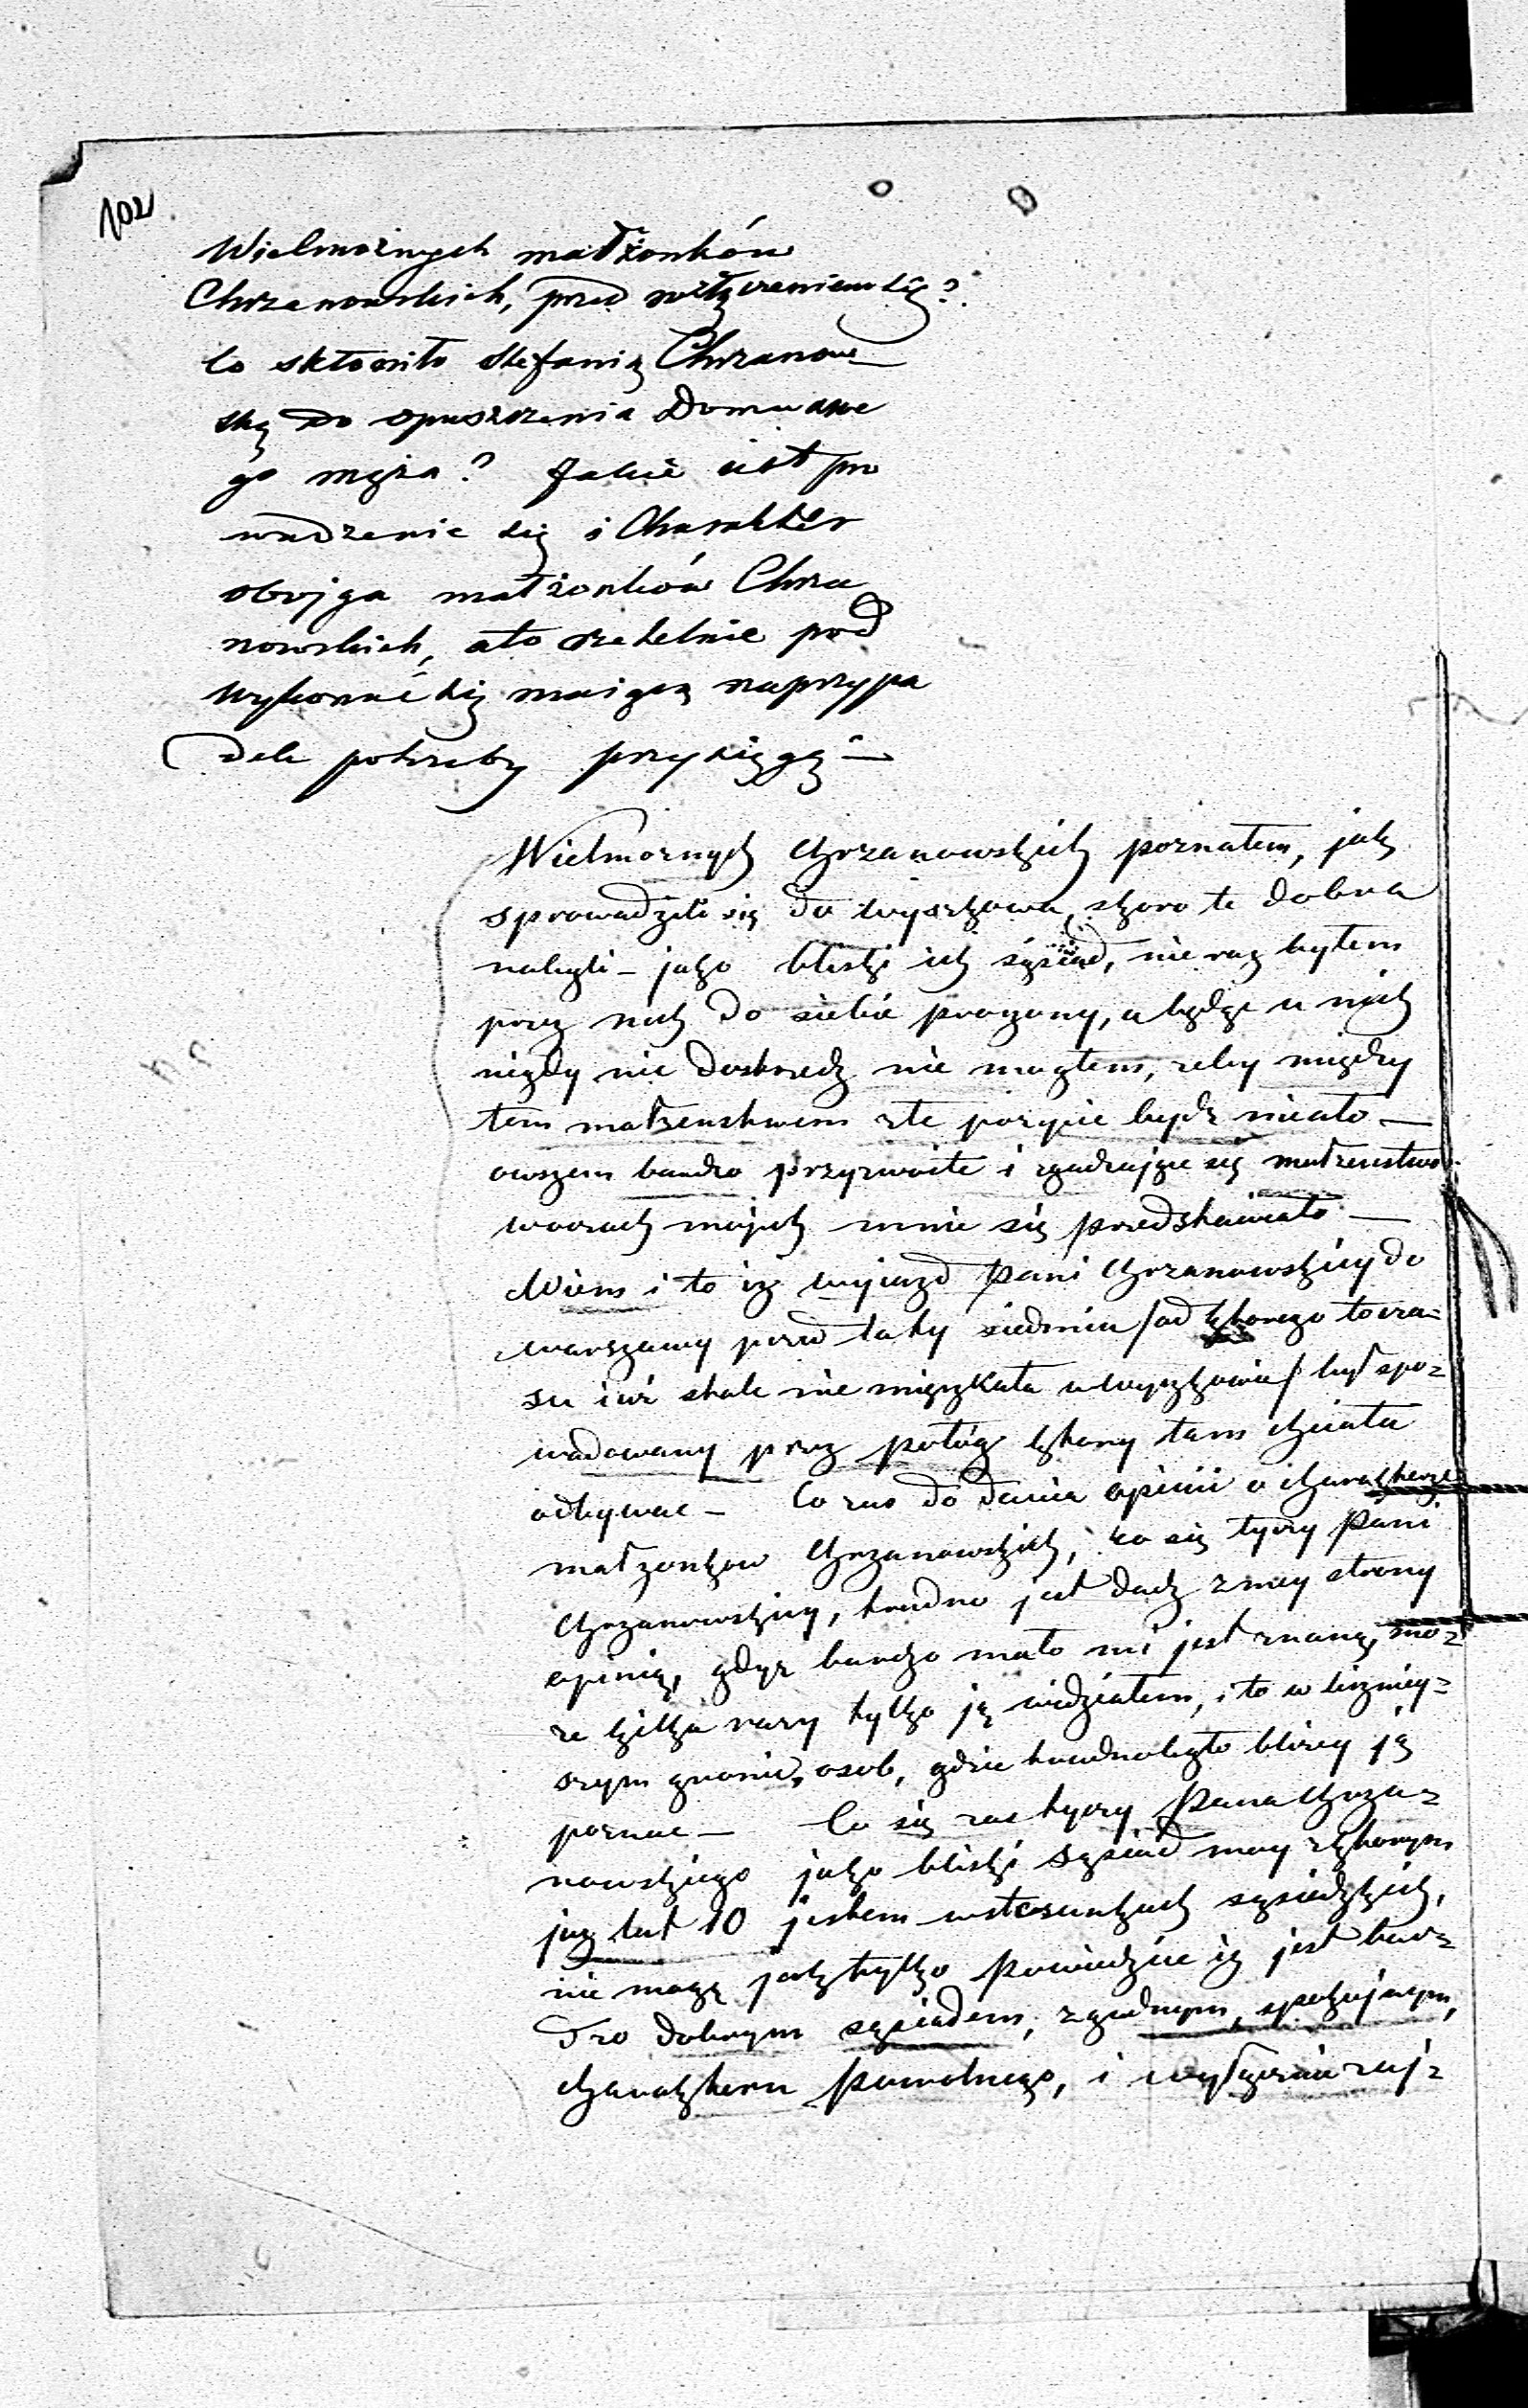 102
Wielmożnych małżonków
Chrzanowskich, przed rozłączeniem się?
Co skłoniło Stefanią Chrzanow_
ską do opuszczenia Domu swe
go męża? Jakie iest pro
wadzenie się i Charakter
obojga małżonków Chrza
nowskich, a to rzetelnie pod
wykonać się maiącą na przypa
dek potrzeby przysięgą —
Wielmoznych Chrzanowskich poznałem, jak
sprowadzili się do Wyszkowa, skoro te dobra
nabyli — jako bliski ich sąsiad, nie raz byłem
przez nich do siebie proszony, a będąc u nich
nigdy nie dostrzedz nie mogłem, zeby między
tem małzenstwem złe pozycie bydz miało —
owszem bardzo przyzwoite i zgadzające się małzenstwo
w oczach mojich mnie się przedstawiało —
Wiem i to iz wyjazd Pani Chrzanowskiey do
Warszawy przed laty siedmiu /od którego to cza-
su iuż stale nie mięszkała w Wyszkowie/ był spo-
wodowany przez połóg który tam chciała
odbywac — Co zas do dania opinii o charakterze
małzonkow Chrzanowskich, co się tyczy Pani
Chrzanowskiey, trudno jest dadz z mey strony
opinią, gdyz bardzo mało mi jest znaną, mo-
ze kilka razy tylko ją widziałem, i to w liczniey-
szym gronie osob, gdzie trudno było blizey ją
poznac — Co się zas tyczy Pana Chrza-
nowskiego jako bliski sąsiad moy z którym
juz lat 10 jestem w stosunkach sąsiedzkich,
nie mogę jak tylko powiedzieć iz jest bar-
dzo dobrym sąsiadem, zgodnym, spokojnym,
charakteru powolnego, i wyłącznie zaj-